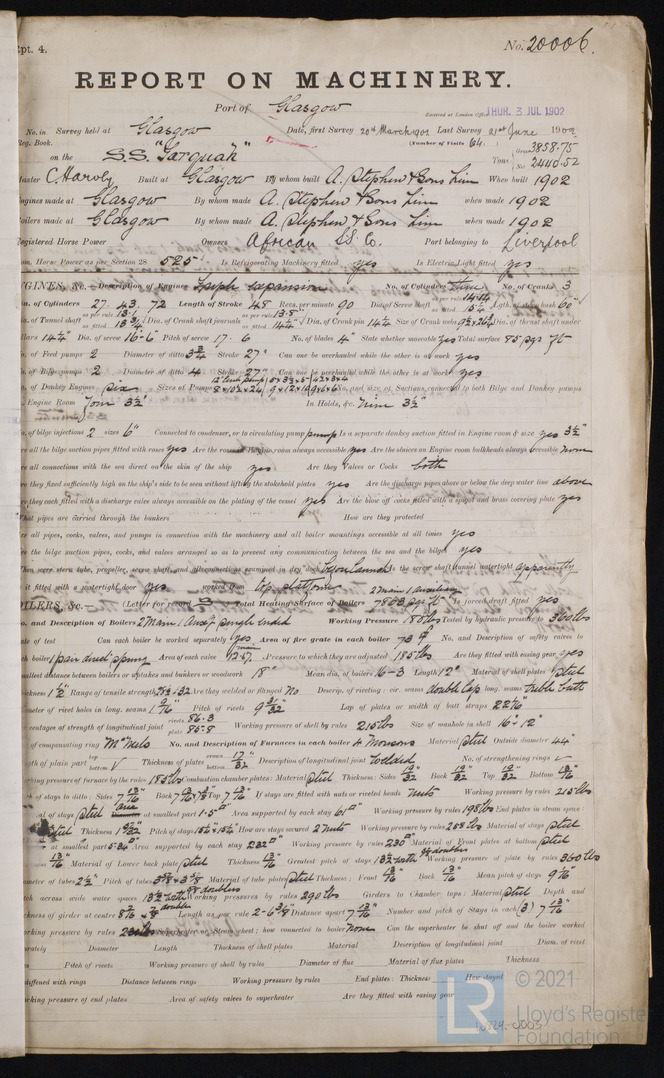 Rpt. 4.
No. 20006.
REPORT ON MACHINERY.
Port of Glasgow
Received at London Office THUR. 3 JUL 1902
No. in Survey held at Glasgow Date, first Survey 20th March 1902 Last Survey 21st June 1902
Reg. Book. (Number of Visits 64.)
on the S.S. "Jarquah" Tons Gross 3858.75 Net 2440.52
Master C. Harvey Built at Glasgow By whom built A. Stephen & Sons Lim When built 1902
Engines made at Glasgow By whom made A. Stephen & Sons Lim when made 1902
Boilers made at Glasgow By whom made A. Stephen & Sons Lim when made 1902
Registered Horse Power Owners African SS. Co. Port belonging to Liverpool
Nom. Horse Power as per Section 28 525 Is Refrigerating Machinery fitted yes Is Electric Light fitted yes
ENGINES, &c.—Description of Engines Triple expansion No. of Cylinders Three No. of Cranks 3
Dia. of Cylinders 27. 43. 72 Length of Stroke 48 Revs. per minute 90 Dia. of Screw shaft as per rule as fitted Lgth. of stern bush 60"
Dia. of Tunnel shaft as per rule 13.1 as fitted 13 3/4 Dia. of Crank shaft journals as per rule 13.8" as fitted 14 1/4" Dia. of Crank pin 14 1/4 Size of Crank webs Dia. of thrust shaft under
collars 14 1/4" Dia. of screw 16-6" Pitch of screw 17.6 No. of blades 4 State whether moveable yes Total surface 85 sqr ft
No. of Feed pumps 2 Diameter of ditto 3 3/4 Stroke 27" Can one be overhauled while the other is at work yes
No. of Bilge pumps 2 Diameter of ditto 4 Stroke 27" Can one be overhauled while the other is at work yes
No. of Donkey Engines six Sizes of Pumps No. and size of Suctions connected to both Bilge and Donkey pumps
In Engine Room Four 3 1/2" In Holds, &c. Nine 3 1/2"
No. of bilge injections 2 sizes 6" Connected to condenser, or to circulating pump pump Is a separate donkey suction fitted in Engine room & size yes 3 1/2"
Are all the bilge suction pipes fitted with roses yes Are the roses in Engine room always accessible yes Are the sluices on Engine room bulkheads always accessible none
Are all connections with the sea direct on the skin of the ship yes Are they Valves or Cocks both
Are they fixed sufficiently high on the ship's side to be seen without lifting the stokehold plates yes Are the discharge pipes above or below the deep water line above
Are they each fitted with a discharge valve always accessible on the plating of the vessel yes Are the blow off cocks fitted with a spigot and brass covering plate yes
What pipes are carried through the bunkers How are they protected
Are all pipes, cocks, valves, and pumps in connection with the machinery and all boiler mountings accessible at all times yes
Are the bilge suction pipes, cocks, and valves arranged so as to prevent any communication between the sea and the bilges yes
When were stern tube, propeller, screw shaft, and all connections examined in dry dock before launch Is the screw shaft tunnel watertight apparently
Is it fitted with a watertight door yes worked from top platform
BOILERS, &c.— (Letter for record S) Total Heating Surface of Boilers 2 main 1 auxiliary Is forced draft fitted yes
No. and Description of Boilers 2 Main 1 Aux'y single ended Working Pressure 185 lbs Tested by hydraulic pressure to 360 lbs
Date of test Can each boiler be worked separately yes Area of fire grate in each boiler 73 No. and Description of safety valves to
each boiler 1 pair direct spring Area of each valve Pressure to which they are adjusted 185 lbs Are they fitted with easing gear yes
Smallest distance between boilers or uptakes and bunkers or woodwork 18" Mean dia. of boilers 16-3 Length 12" Material of shell plates steel
Thickness 1 1/2" Range of tensile strength 28 1/2 - 32 Are they welded or flanged No Descrip. of riveting: cir. seams double lap long. seams treble butt
Diameter of rivet holes in long. seams 1 9/16" Pitch of rivets 9 31/32" Lap of plates or width of butt straps 22 7/8
Percentages of strength of longitudinal joint rivets 86.3 plate 85.8 Working pressure of shell by rules 215 lbs Size of manhole in shell 16" - 12"
Size of compensating ring McNeils No. and Description of Furnaces in each boiler 4 Morisons Material steel Outside diameter 44"
Length of plain part top bottom Thickness of plates crown bottom 17/32" Description of longitudinal joint welded No. of strengthening rings
Working pressure of furnace by the rules 185 lbs Combustion chamber plates: Material steel Thickness: Sides 19/32" Back 19/32" Top 19/32" Bottom 13/16"
Pitch of stays to ditto: Sides Back Top If stays are fitted with nuts or riveted heads nuts Working pressure by rules 215 lbs
Material of stays steel at smallest part 1.5 Area supported by each stay 61 Working pressure by rules 195 lbs End plates in steam space:
steel Thickness 1 9/32 Pitch of stays How are stays secured 2 nuts Working pressure by rules 255 lbs Material of stays steel
at smallest part 5.34 Area supported by each stay 232 Working pressure by rules 230 Material of Front plates at bottom steel
13/16" Material of Lower back plate steel Thickness 13/16" Greatest pitch of stays Working pressure of plate by rules 360 lbs
Diameter of tubes 2 1/2" Pitch of tubes Material of tube plates steel Thickness: Front 13/16" Back 13/16" Mean pitch of stays 9 1/16"
Pitch across wide water spaces Working pressures by rules 290 lbs Girders to Chamber tops: Material steel Depth and
thickness of girder at centre Length as per rule 2-6 Distance apart Number and pitch of Stays in each (3)
Working pressure by rules Superheater or Steam chest; how connected to boiler None Can the superheater be shut off and the boiler worked
separately Diameter Length Thickness of shell plates Material Description of longitudinal joint Diam. of rivet
holes Pitch of rivets Working pressure of shell by rules Diameter of flue Material of flue plates Thickness
If stiffened with rings Distance between rings Working pressure by rules End plates: Thickness How stayed
Working pressure of end plates Area of safety valves to superheater Are they fitted with easing gear
© 2021
LR
Lloyd's Register
Foundation